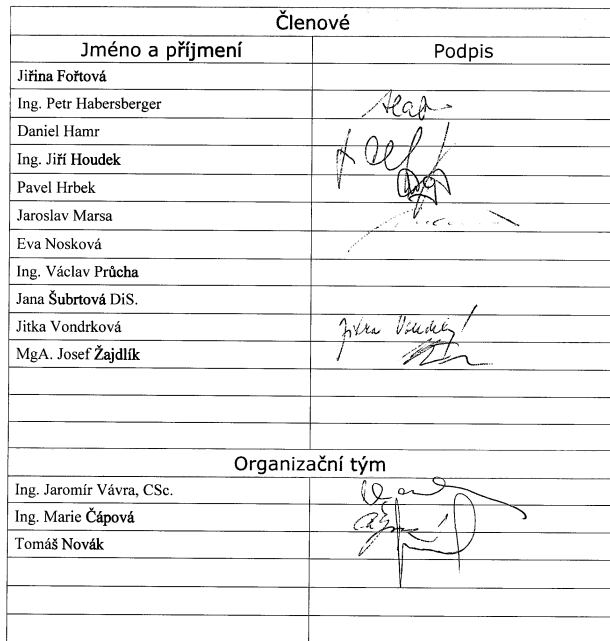 Členové
Jméno a příjmení Podpis
Jiřina Fořtová
Ing. Petr Habersberger
Daniel Hamr
Ing. Jiří Houdek
Pavel Hrbek
Jaroslav Marsa
Eva Nosková
Ing. Václav Průcha
Jana Šubrtová DiS.
Jitka Vondrková Jitka
MgA. Josef Žajdlík
Organizační tým
Ing. Jaromír Vávra, CSc.
Ing. Marie Čápová
Tomáš Novák